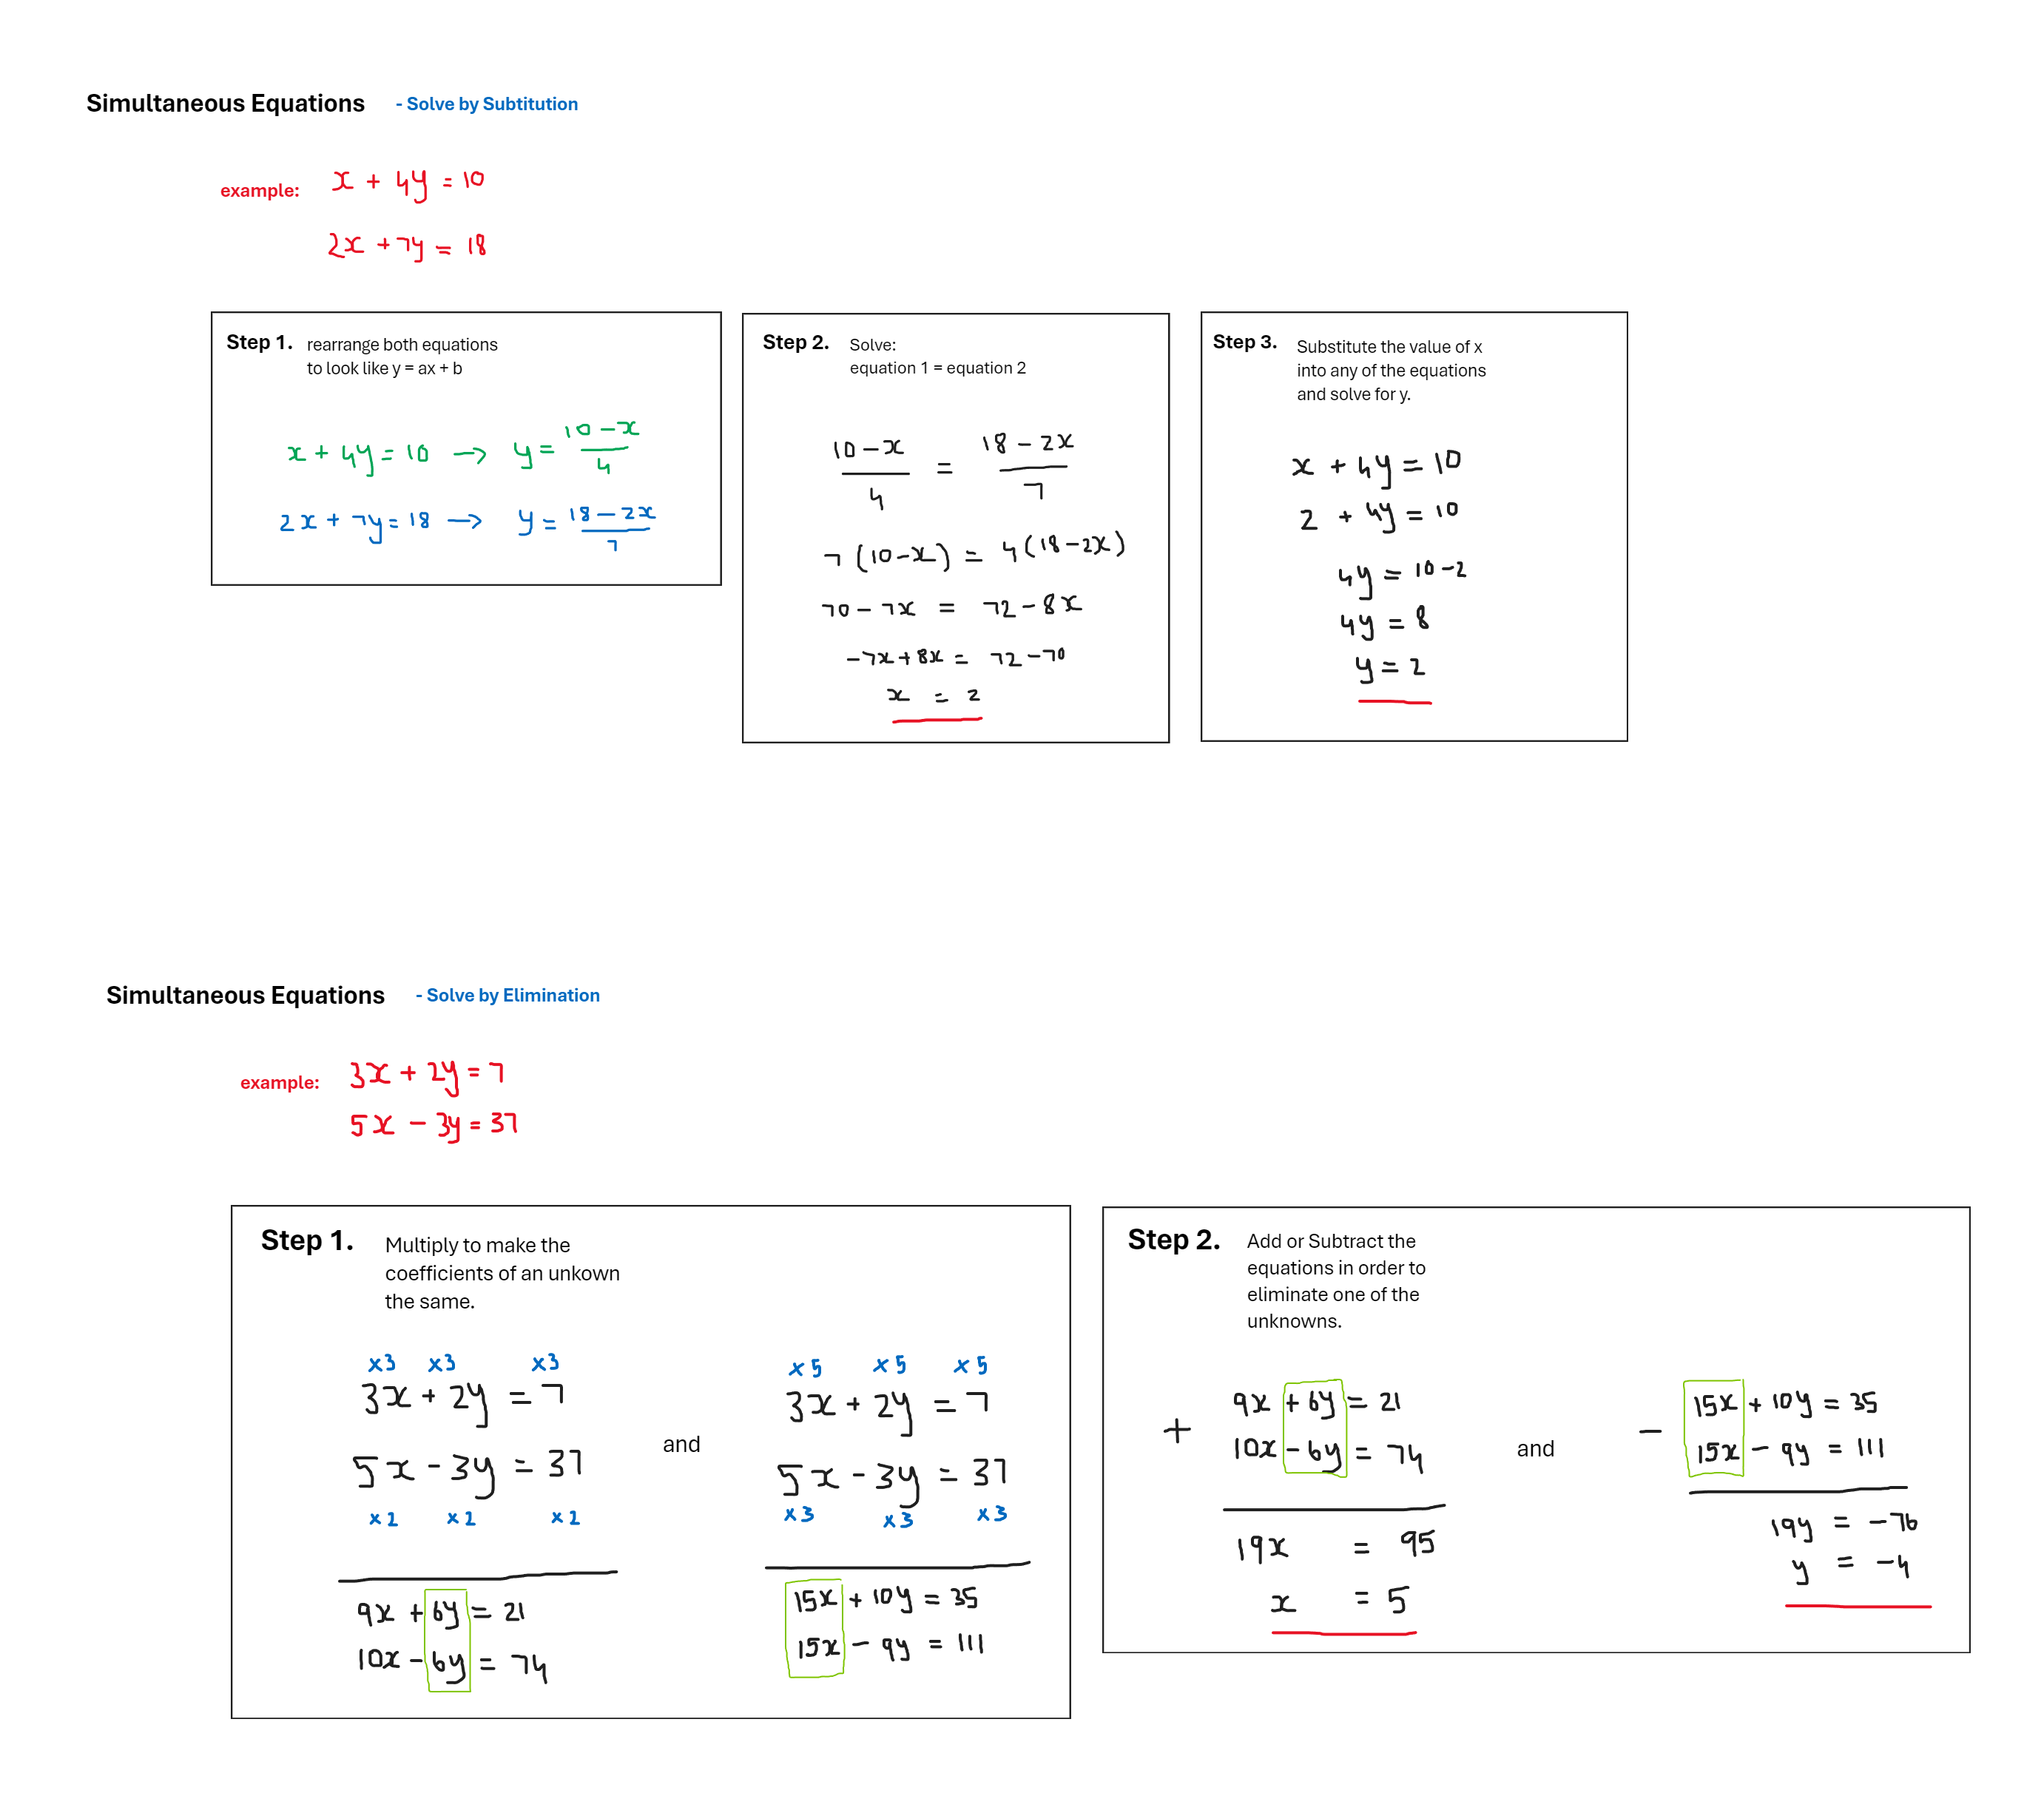 Simultaneous Equations - Solve by Subtitution
example: x + 4y = 10
2x + 7y = 18
Step 1. rearrange both equations
to look like y = ax + b
x + 4y = 10 → y = (10 - x)/4
2x + 7y = 18 → y = (18 - 2x)/7
Step 2. Solve:
equation 1 = equation 2
(10 - x)/4 = (18 - 2x)/7
7 (10 - x) = 4 (18 - 2x)
70 - 7x = 72 - 8x
-7x + 8x = 72 - 70
x = 2
Step 3. Substitute the value of x
into any of the equations
and solve for y.
x + 4y = 10
2 + 4y = 10
4y = 10 - 2
4y = 8
y = 2
Simultaneous Equations - Solve by Elimination
example: 3x + 2y = 7
5x - 3y = 37
Step 1. Multiply to make the
coefficients of an unkown
the same.
x3 x3 x3
3x + 2y = 7
5x - 3y = 37
x2 x2 x2
9x + 6y = 21
10x - 6y = 74
and
x5 x5 x5
3x + 2y = 7
5x - 3y = 37
x3 x3 x3
15x + 10y = 35
15x - 9y = 111
Step 2. Add or Subtract the
equations in order to
eliminate one of the
unknowns.
9x + 6y = 21
+
10x - 6y = 74
19x = 95
x = 5
and
15x + 10y = 35
-
15x - 9y = 111
19y = -76
y = -4